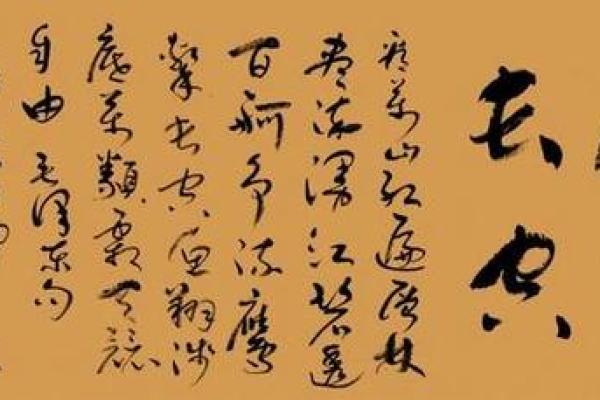 长空
看萬山红遍层林
尽染漫江碧透
百舸争流鹰
擊长空鱼翔浅
底萬類霜天競
自由 毛澤东句